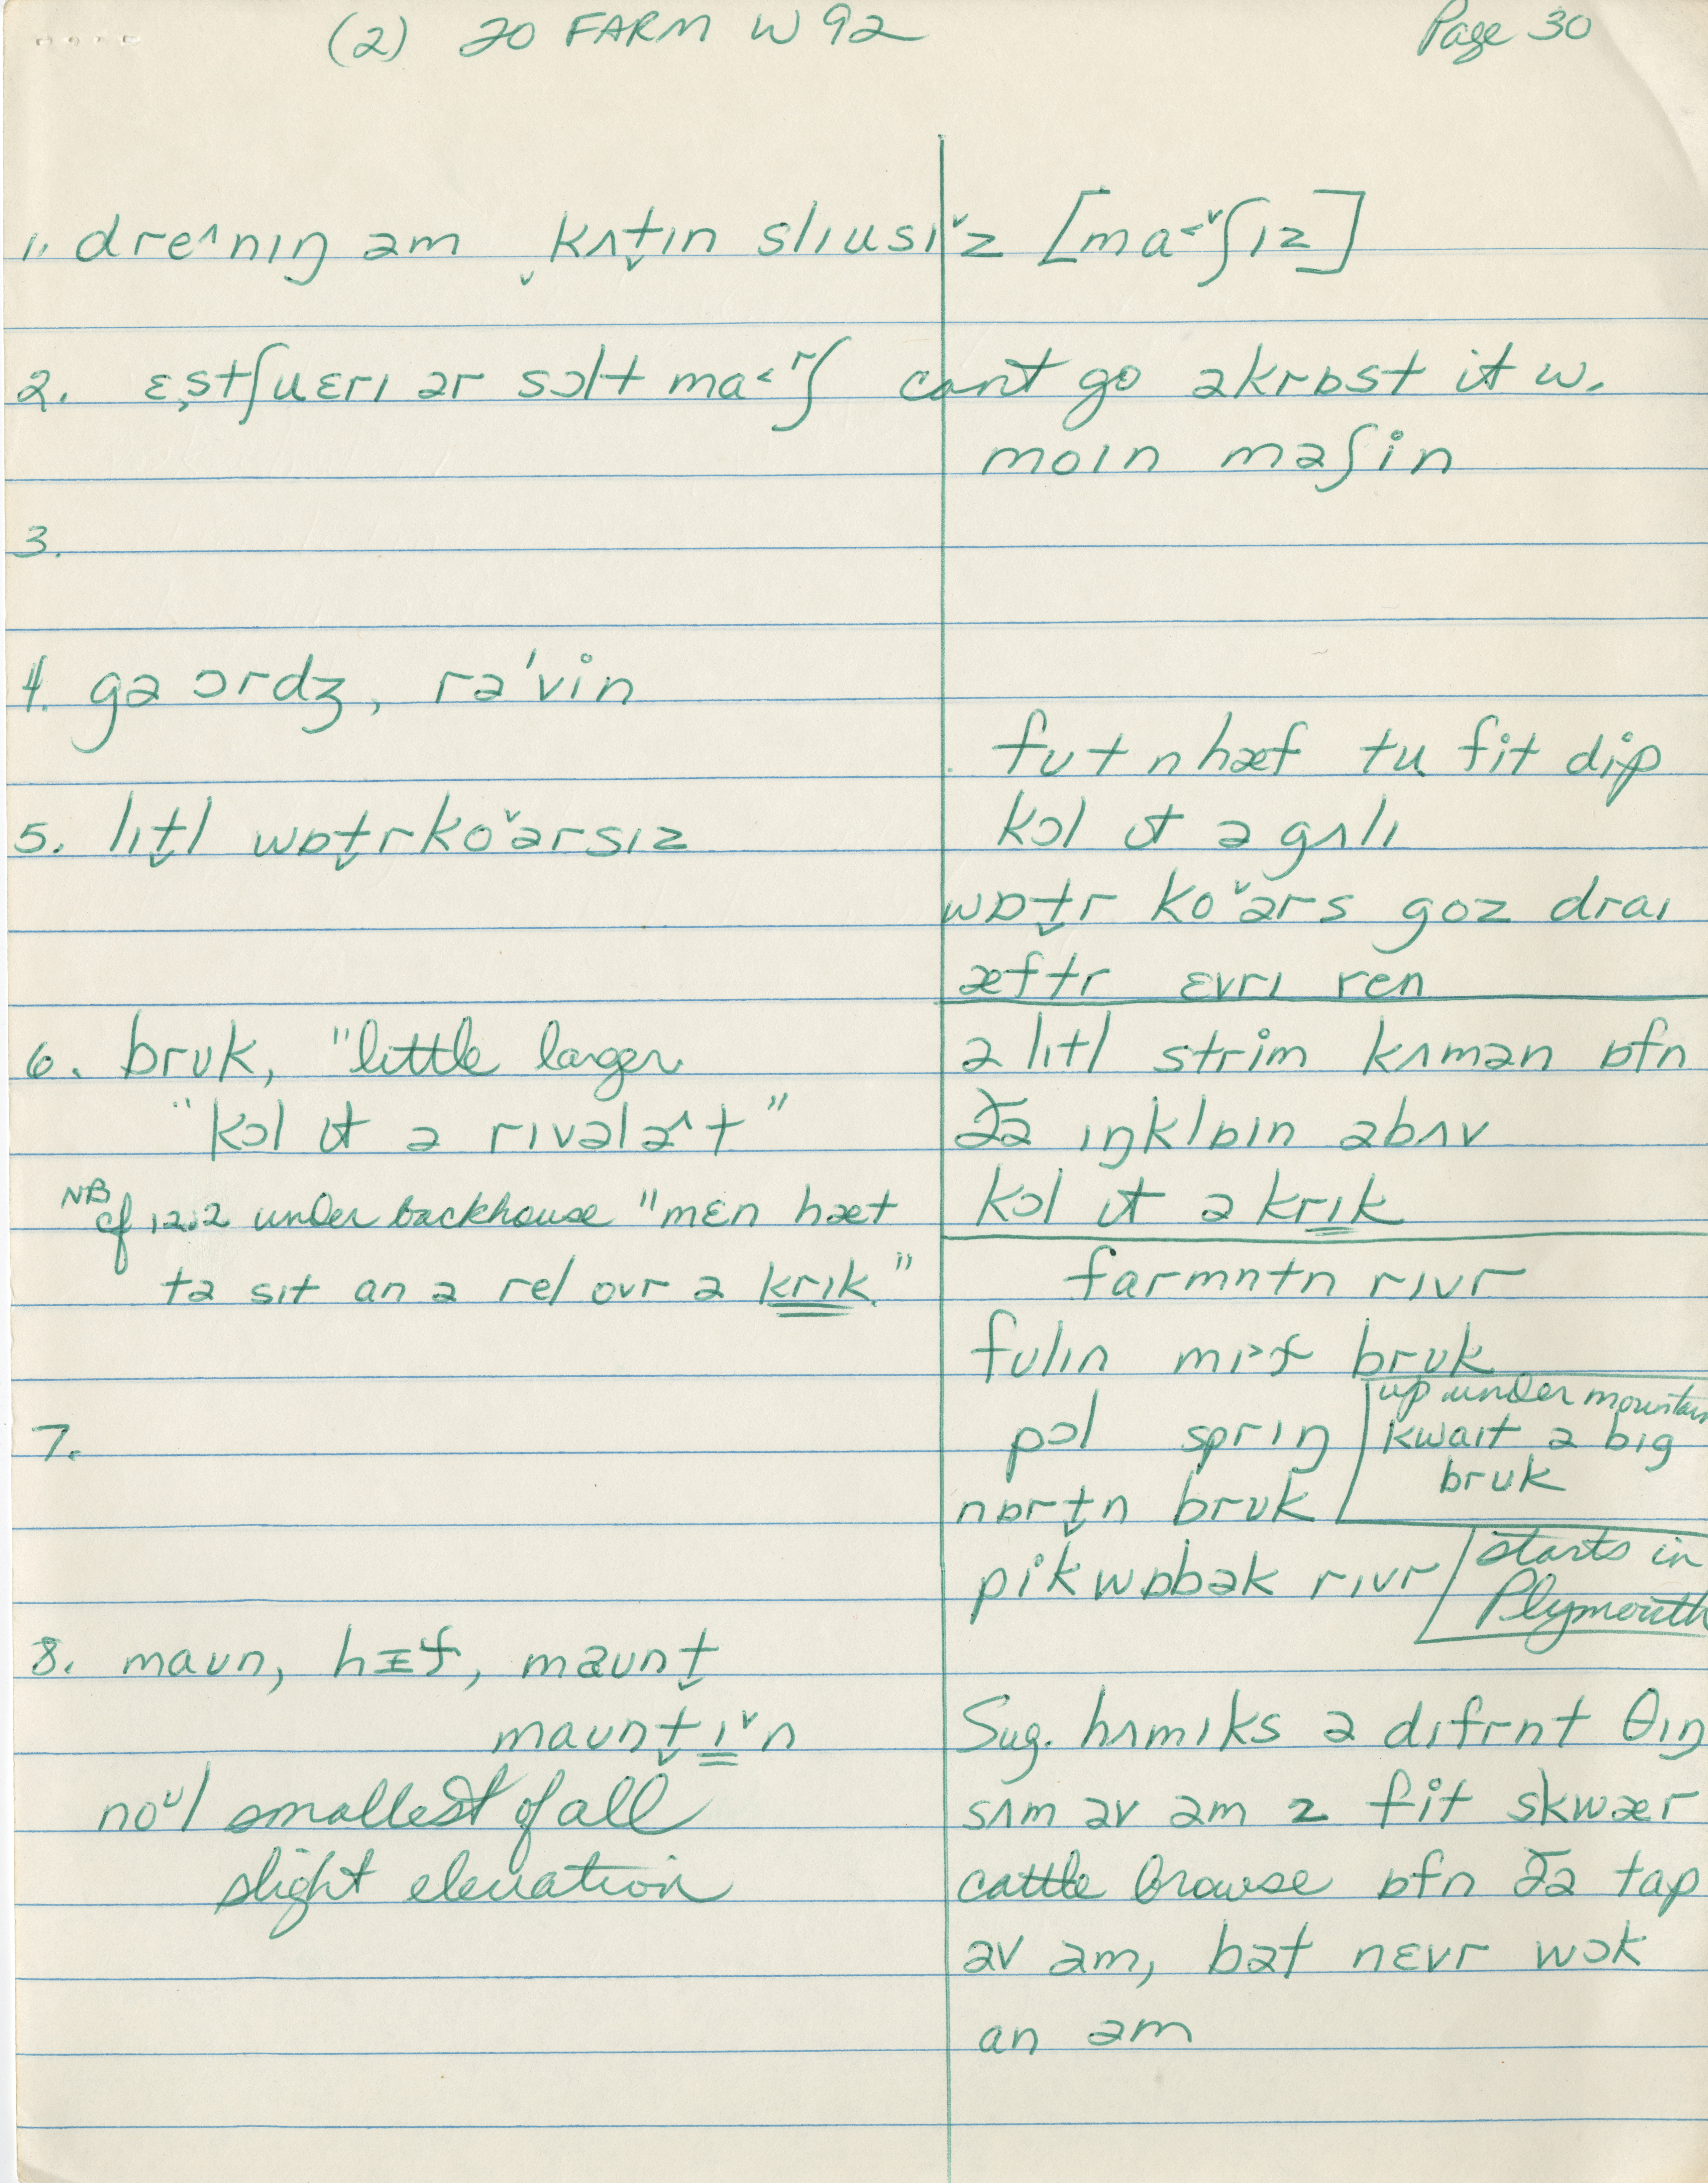 (2) 20 FARM W 92 Page 30
1. dre^nɪŋ əm ˬkʌt̬ɪn slɪusɪˇz [ma˂ˇʃɪz]
2. ɛstʃuɛrɪ ər sɔlt ma˂ʳʃ cant go əkrɒst it w.
moɪn məʃin
3.
4. gəɔrdʒ, rə'vin
fʊt n hæf tu fit dip
5. lɪt̬l wɒt̬rkoˇərsɪz kɔl ɪt ə gʌlɪ
wɒt̬r koˇərs goz draɪ
æftr ɛvrɪ ren
6. brʊk, "little larger
"kɔl ɪt ə rɪvələ^t"
NB cf 12.2 under backhouse "mɛn hæt
tə sɪt an ə rel ovr ə krɪk."
ə lɪtl strim kʌmən ɒfn
ðə ɪŋklɒɪn əbʌv
kɔl ɪt ə krɪk
farmntn rɪvr
fʊlɪn mɪ˃f brʊk
7.
pɔl sprɪŋ
nɒrt̬n brʊk
up under mountain
kwaɪt ə bɪg
brʊk
pikwɒbək rɪvr
starts in
Plymouth
8. maʊn, hɪf, məʊnt̬
maʊnt̬ɪˇn
noᵘl smallest of all
slight elevation
Sug. hʌmɪks ə dɪfrnt θɪŋ
sʌm əv əm 2 fit skwær
cattle browse ɒfn ðə tap
əv əm, bət nɛvr wɔk
an əm